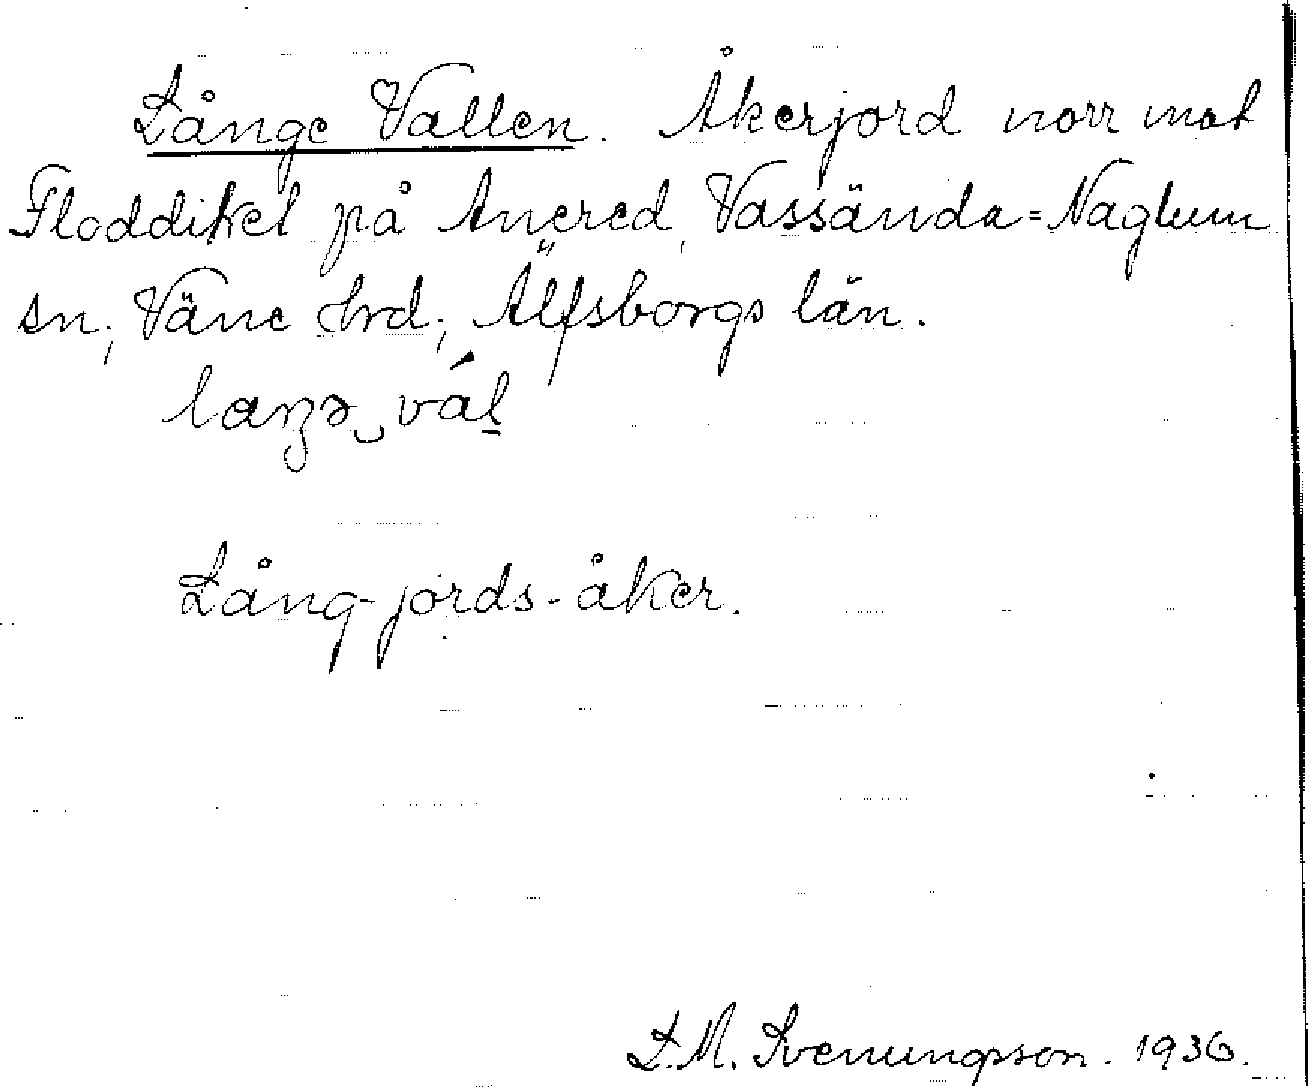 Långe Vallen. Åkerjord norr mot
Floddiket på Anered, Vassända=Naglum
sn; Väne Hrd; Älfsborgs län.
Lång-jords-åker.
L.M. Svenungson. 1936.